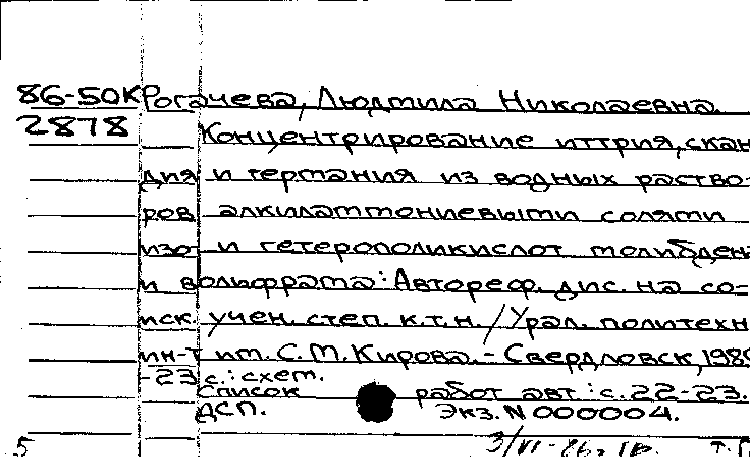 86-50К Рогачева, Людмила Николаевна
2878 Концентрирование иттрия, скан
дия и германия из водных раство-
ров алкиламмониевыми солями
изо- и гетерополикислот молибдена
и вольфрама: Автореф. дис. на со-
иск. учен. степ. к.т.н. / Урал. политехн
ин-т им. С.М. Кирова. - Свердловск,
-23 с.: схем.
Список работ авт.: с. 22-23.
ДСП. Экз. N 000004.
5